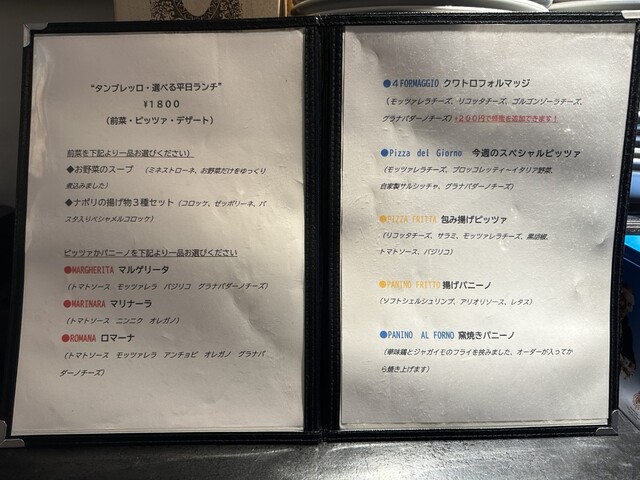 "タンブレッロ・選べる平日ランチ"
¥1800
(前菜・ピッツァ・デザート)
前菜を下記より一品お選びください)
◆お野菜のスープ (ミネストローネ、お野菜だけをゆっくり
煮込みました)
◆ナポリの揚げ物3種セット (コロッケ、ゼッポリーネ、パ
スタ入りベシャメルコロッケ)
ピッツァかパニーノを下記より一品お選びください
●MARGHERITA マルゲリータ
(トマトソース モッツァレラ バジリコ グラナパダーノチーズ)
●MARINARA マリナーラ
(トマトソース ニンニク オレガノ)
●ROMANA ロマーナ
(トマトソース モッツァレラ アンチョビ オレガノ グラナパ
ダーノチーズ)
●4 FORMAGGIO クワトロフォルマッジ
(モッツァレラチーズ、リコッタチーズ、ゴルゴンゾーラチーズ、
グラナパダーノチーズ) +200円で蜂蜜を追加できます!
●Pizza del Giorno 今週のスペシャルピッツァ
(モッツァレラチーズ、ブロッコレッティーイタリア野菜、
自家製サルシッチャ、グラナパダーノチーズ)
●PIZZA FRITTA 包み揚げピッツァ
(リコッタチーズ、サラミ、モッツァレラチーズ、黒胡椒、
トマトソース、バジリコ)
●PANINO FRITTO 揚げパニーノ
(ソフトシェルシュリンプ、アリオリソース、レタス)
●PANINO AL FORNO 窯焼きパニーノ
(華味鶏とジャガイモのフライを挟みました、オーダーが入ってか
ら焼き上げます)